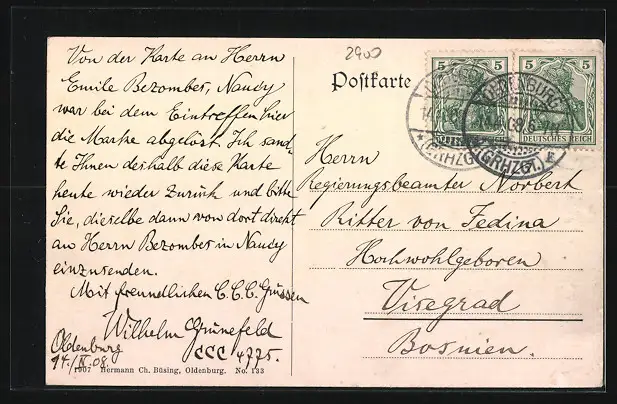 Von der Karte an Herrn
Emile Bezombes, Nancy
war bei dem Eintreffen hier
die Marke abgelöst. Ich sand-
te Ihnen deshalb diese Karte
heute wieder zurück und bitte
Sie, dieselbe dann von dort direkt
an Herrn Bezombes in Nancy
einzusenden.
Mit freundlichen C.C.C. Grüssen
Wilhelm Grünefeld
CCC 4775.
Oldenburg
14./II.08.
1907 Hermann Ch. Büsing, Oldenburg. No. 133
2900
Postkarte
5 5 5 5
DEUTSCHES REICH
OLDENBURG
(GRHZGT.)
Herrn
Regierungsbeamter Norbert
Ritter von Fedina
Hochwohlgeboren
Visegrad
Bosnien.